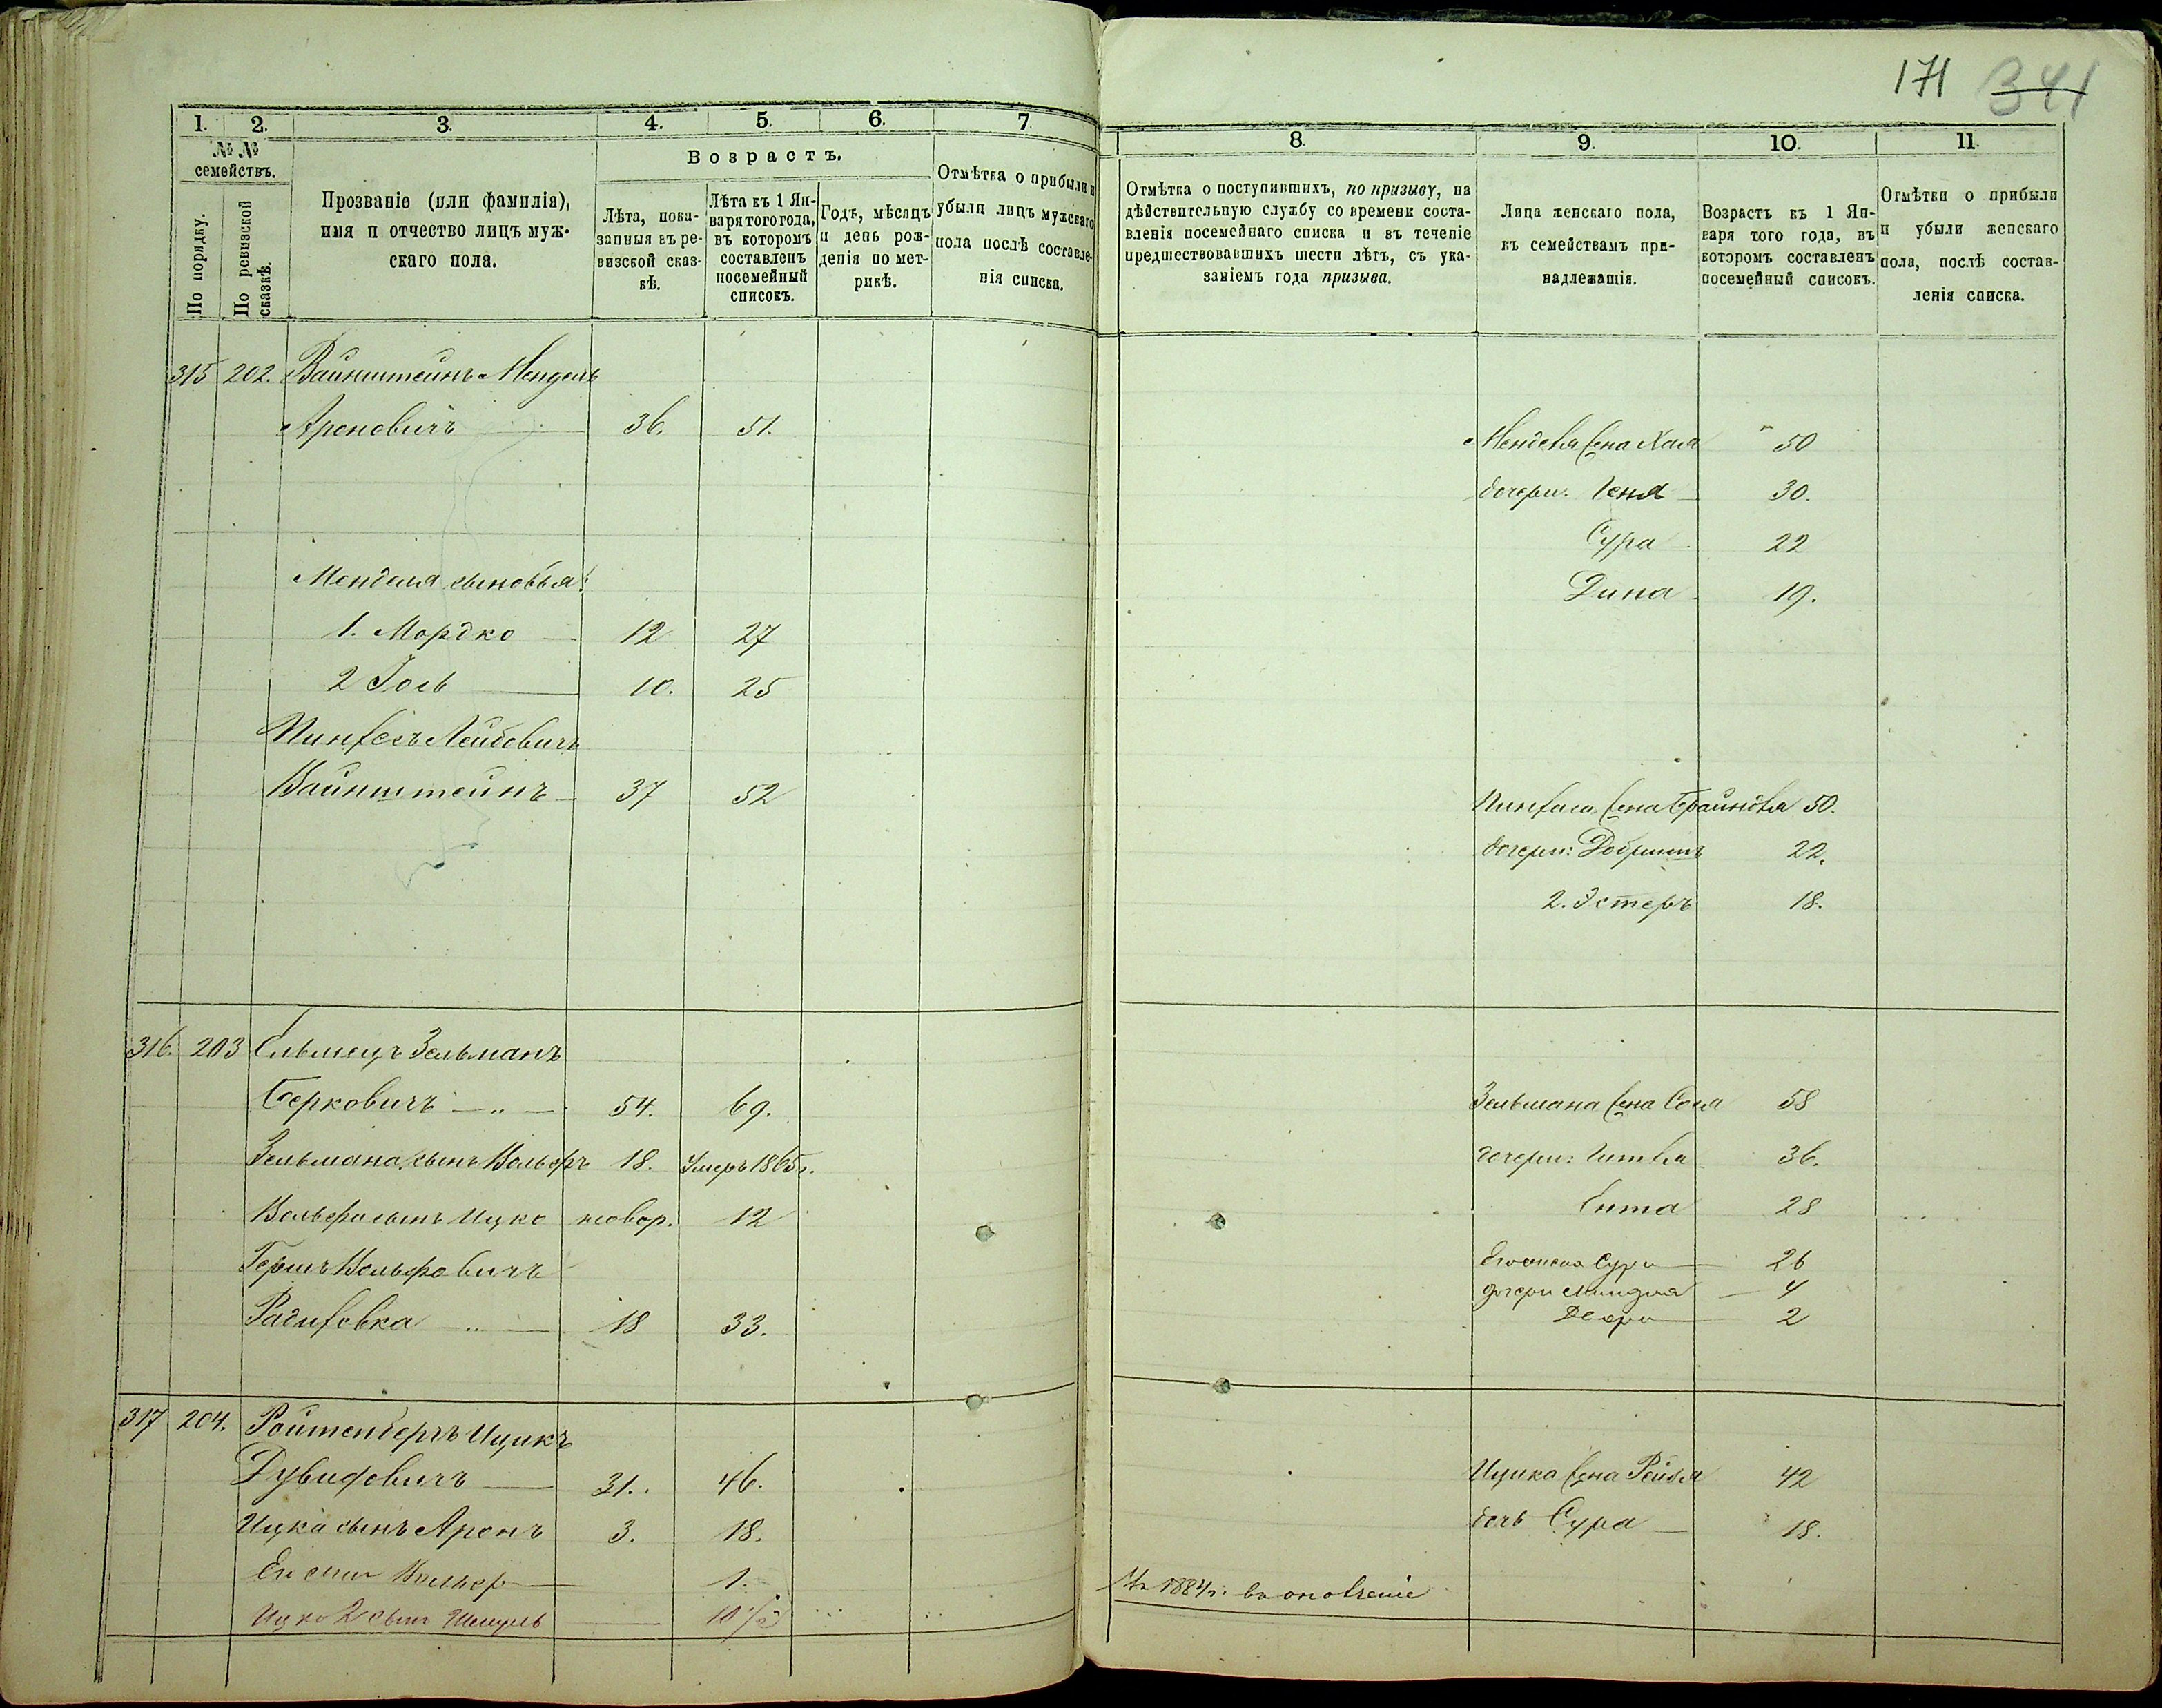 171 341
1. 2. 3. 4. 5. 6. 7.
№ № семействъ.
По порядку.
По ревизской сказкѣ.
Прозваніе (или фамилія),
имя и отчество лицъ муж-
скаго пола.
Возрастъ.
Лѣта, пока-
занныя въ ре-
визской сказ-
кѣ.
Лѣта къ 1 Ян-
варя того года,
въ которомъ
составленъ
посемейный
списокъ.
Годъ, мѣсяцъ
и день рож-
денія по мет-
рикѣ.
Отмѣтка о прибыли и
убыли лицъ мужскаго
пола послѣ составле-
нія списка.
315 202. Вайнштейнъ Мендель
Ароновичъ 36. 51.
Менделя сыновья:
1. Мордко 12 27
2 Іось 10. 25
Пинхасъ Лейбовичъ
Вайнштейнъ 37 52
316. 203 Зельманъ
Берковичъ — „ — 54. 69.
Зельмана сынъ Вольфъ 18. Умеръ 1865г.
Вольфа сынъ Ицко новор. 12
Гершъ Вольфовичъ
— „ — 18 33.
317 204. Ройтенбергъ Ицикъ
Дувидовичъ 31. 46.
Ицка сынъ Аронъ 3. 18.
Его сынъ 1.
Ицко 2 сынъ Шмуль 10 1/2
8. 9. 10. 11.
Отмѣтка о поступившихъ, по призыву, на
дѣйствительную службу со времени соста-
вленія посемейнаго списка и въ теченіе
предшествовавшихъ шести лѣтъ, съ ука-
заніемъ года призыва.
Лица женскаго пола,
къ семействамъ при-
надлежащія.
Возрастъ къ 1 Ян-
варя того года, въ
которомъ составленъ
посемейный списокъ.
Отмѣтки о прибыли
и убыли женскаго
пола, послѣ состав-
ленія списка.
Менделя жена Хая 50
дочери: Геня 30.
Сура 22
Дина 19.
Пинхаса жена Брайндля 50.
дочери: Добришъ 22.
2. Эстеръ 18.
Зельмана жена 58
дочери: Гитля 36.
Ента 28
Его жена Сура 26
дочери Миндля 4
Двойра 2
Ицика жена Рейзя 42
дочь Сура 18.
Въ 1884г. въ ополченіе